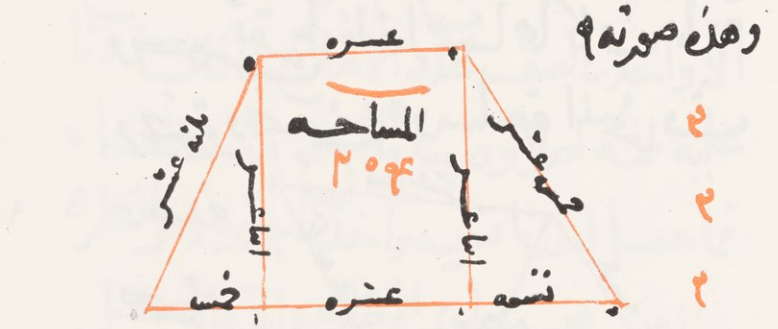 وهذه صورته
عشره
المساحه
٢٠٤
ثلثه عشر
اثناعشر
اثناعشر
خمسه عشر
تسعه
عشره
خمسه